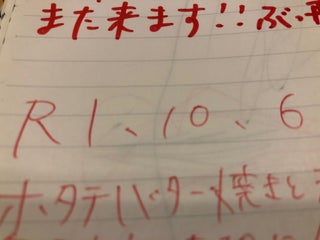 また来ます!!ぶ
R1、10、6
ホタテバター焼きと